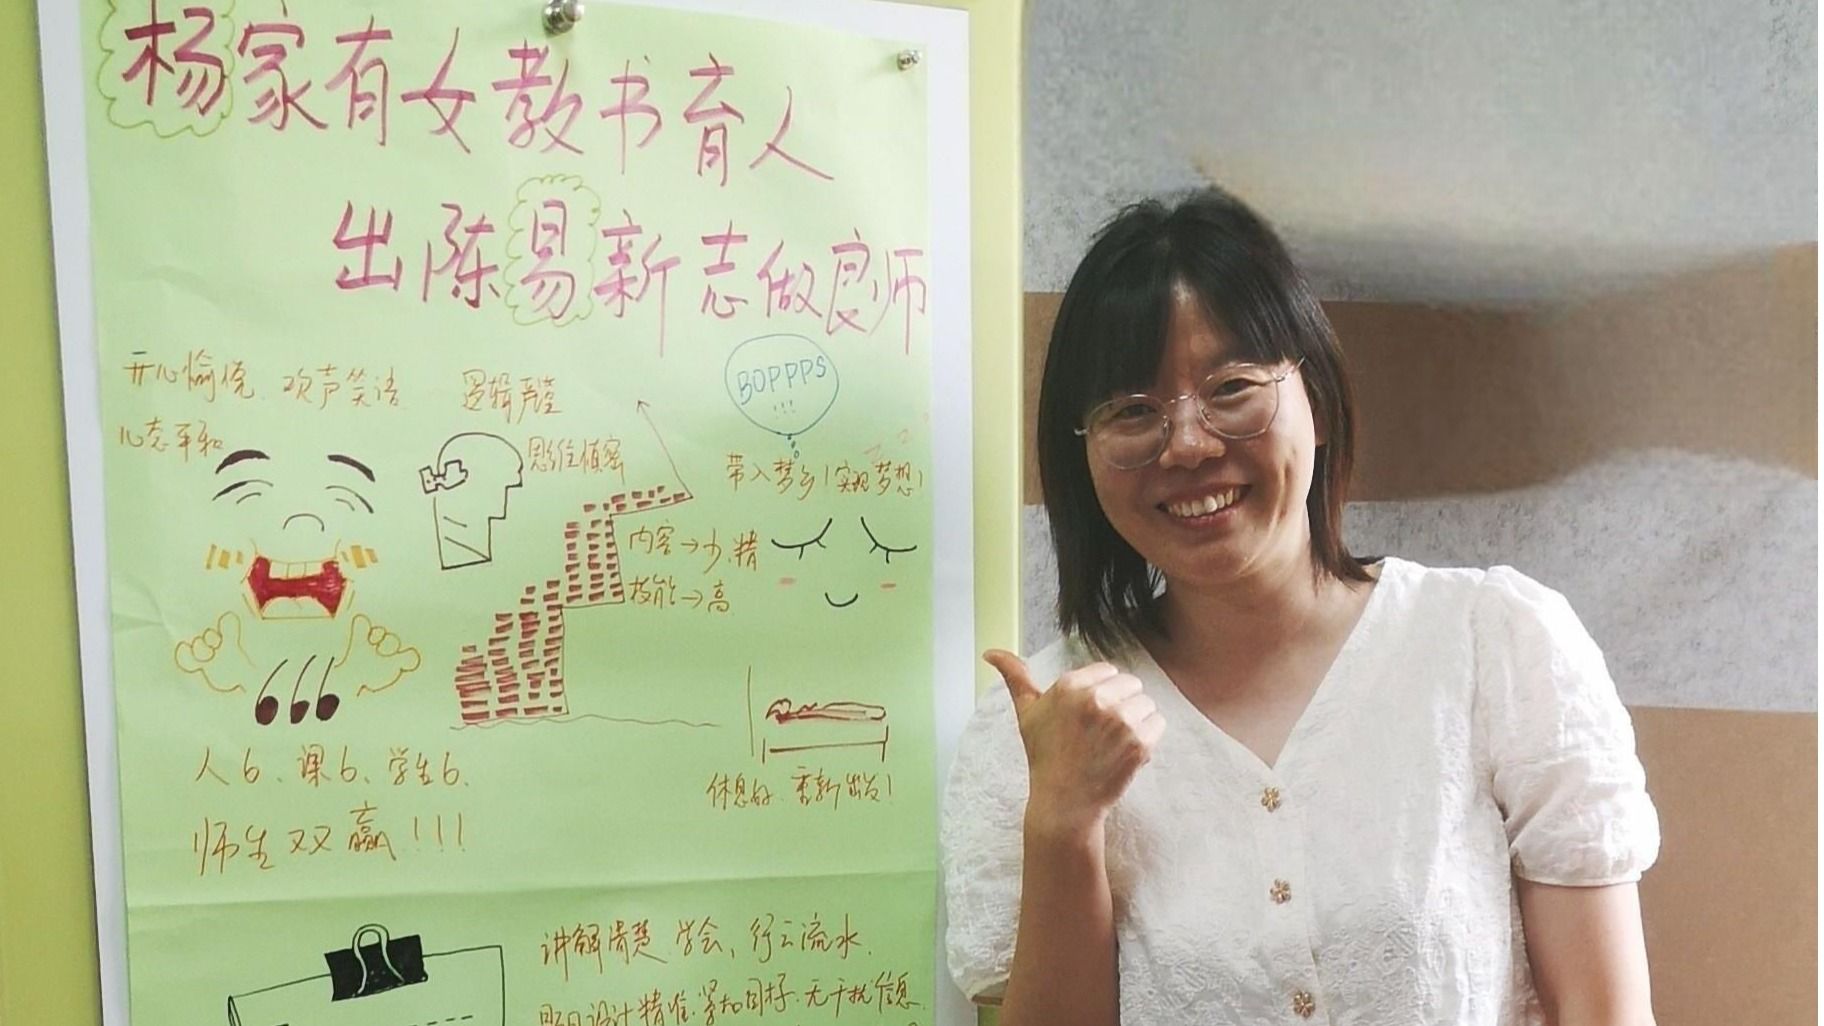 杨家有女教书育人
出陈易新志做良师
开心愉悦、欢声笑语
心态平和
逻辑严谨
思维缜密
BOPPPS
!!!
带入梦乡(实现梦想)
内容→少.精
技能→高
666
人6、课6、学生6.
师生双赢!!!
休息好、重新出发!
讲解清楚 学会、行云流水.
设计精准.紧扣目标.无干扰信息.